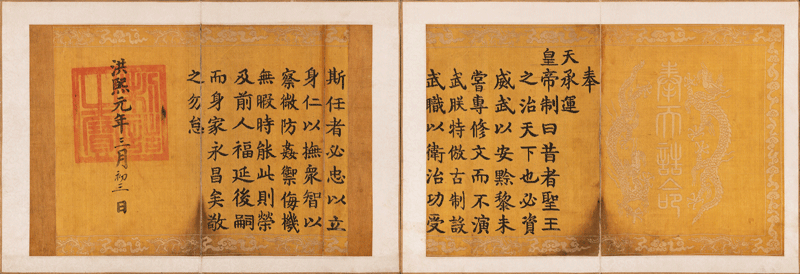 奉天誥命
奉
天承運
皇帝制曰昔者聖王
之治天下也必資
威武以安黔黎未
嘗專修文而不演
武朕特倣古制設
武職以衛治功受
斯任者必忠以立
身仁以撫衆智以
察微防姦禦侮機
無暇時能此則榮
及前人福延後嗣
而身家永昌矣敬
之勿怠
洪熙元年三月初三日
制誥之寶